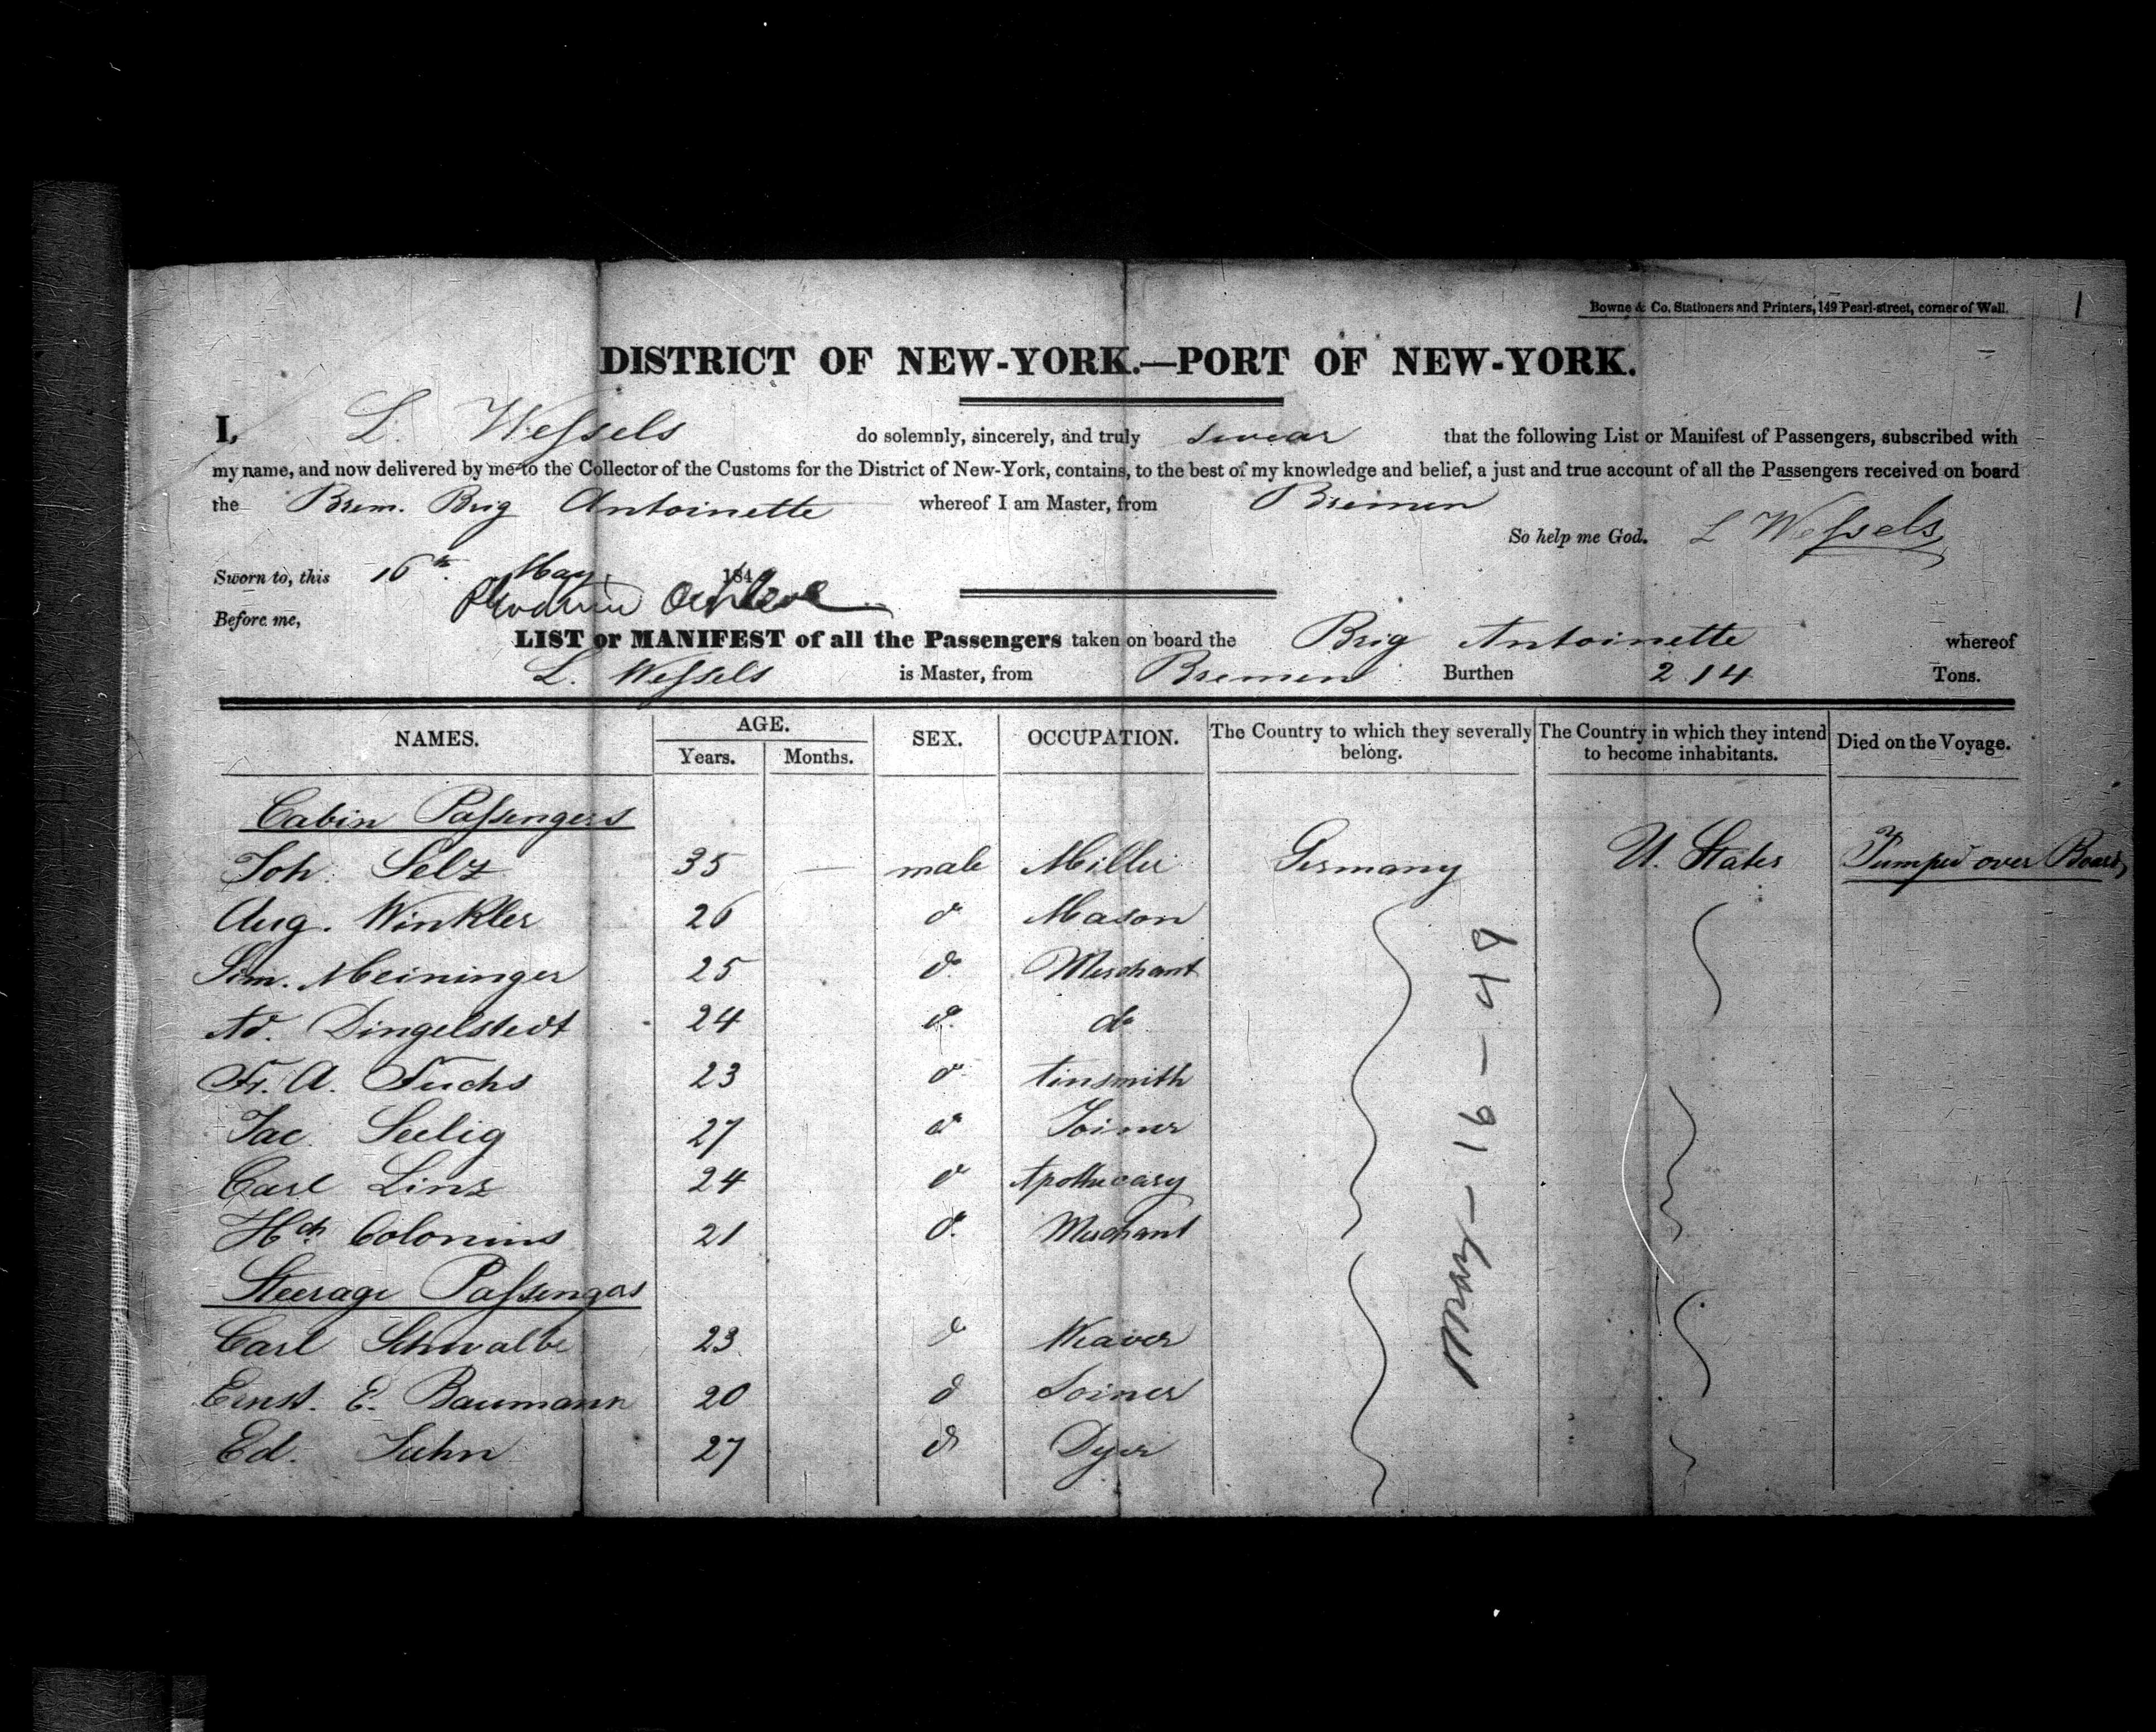 Bowne & Co. Stationers and Printers, 149 Pearl-street, corner of Wall.
1
DISTRICT OF NEW-YORK.—PORT OF NEW-YORK.
I, L. Weſsels do solemnly, sincerely, and truly swear that the following List or Manifest of Passengers, subscribed with
my name, and now delivered by me to the Collector of the Customs for the District of New-York, contains, to the best of my knowledge and belief, a just and true account of all the Passengers received on board
the Brem. Brig Antoinette whereof I am Master, from Bremen
So help me God. L Weſsels
Sworn to, this 16th May 184
Before me,
LIST or MANIFEST of all the Passengers taken on board the Brig Antoinette whereof
L. Weſsels is Master, from Bremen Burthen 214 Tons.
NAMES. AGE. Years. Months. SEX. OCCUPATION. The Country to which they severally belong. The Country in which they intend to become inhabitants. Died on the Voyage.
Cabin Paſsengers
Joh. Selz 35 — male Miller Germany U. States Jumped over Board
Aug. Winkler 26 do Mason
Sim. Meininger 25 do Merchant
Ad. Dingelstedt 24 do do
Fr. A. Fuchs 23 do tinsmith
Jac. Seelig 27 do Joiner
Carl Linz 24 do Apothecary
Hch Colonius 21 do Merchant
Steerage Paſsengers
Carl Schwalbe 23 do Weaver
Ernst. E. Baumann 20 do Joiner
Ed. 27 do Dyer
May - 16 - 49